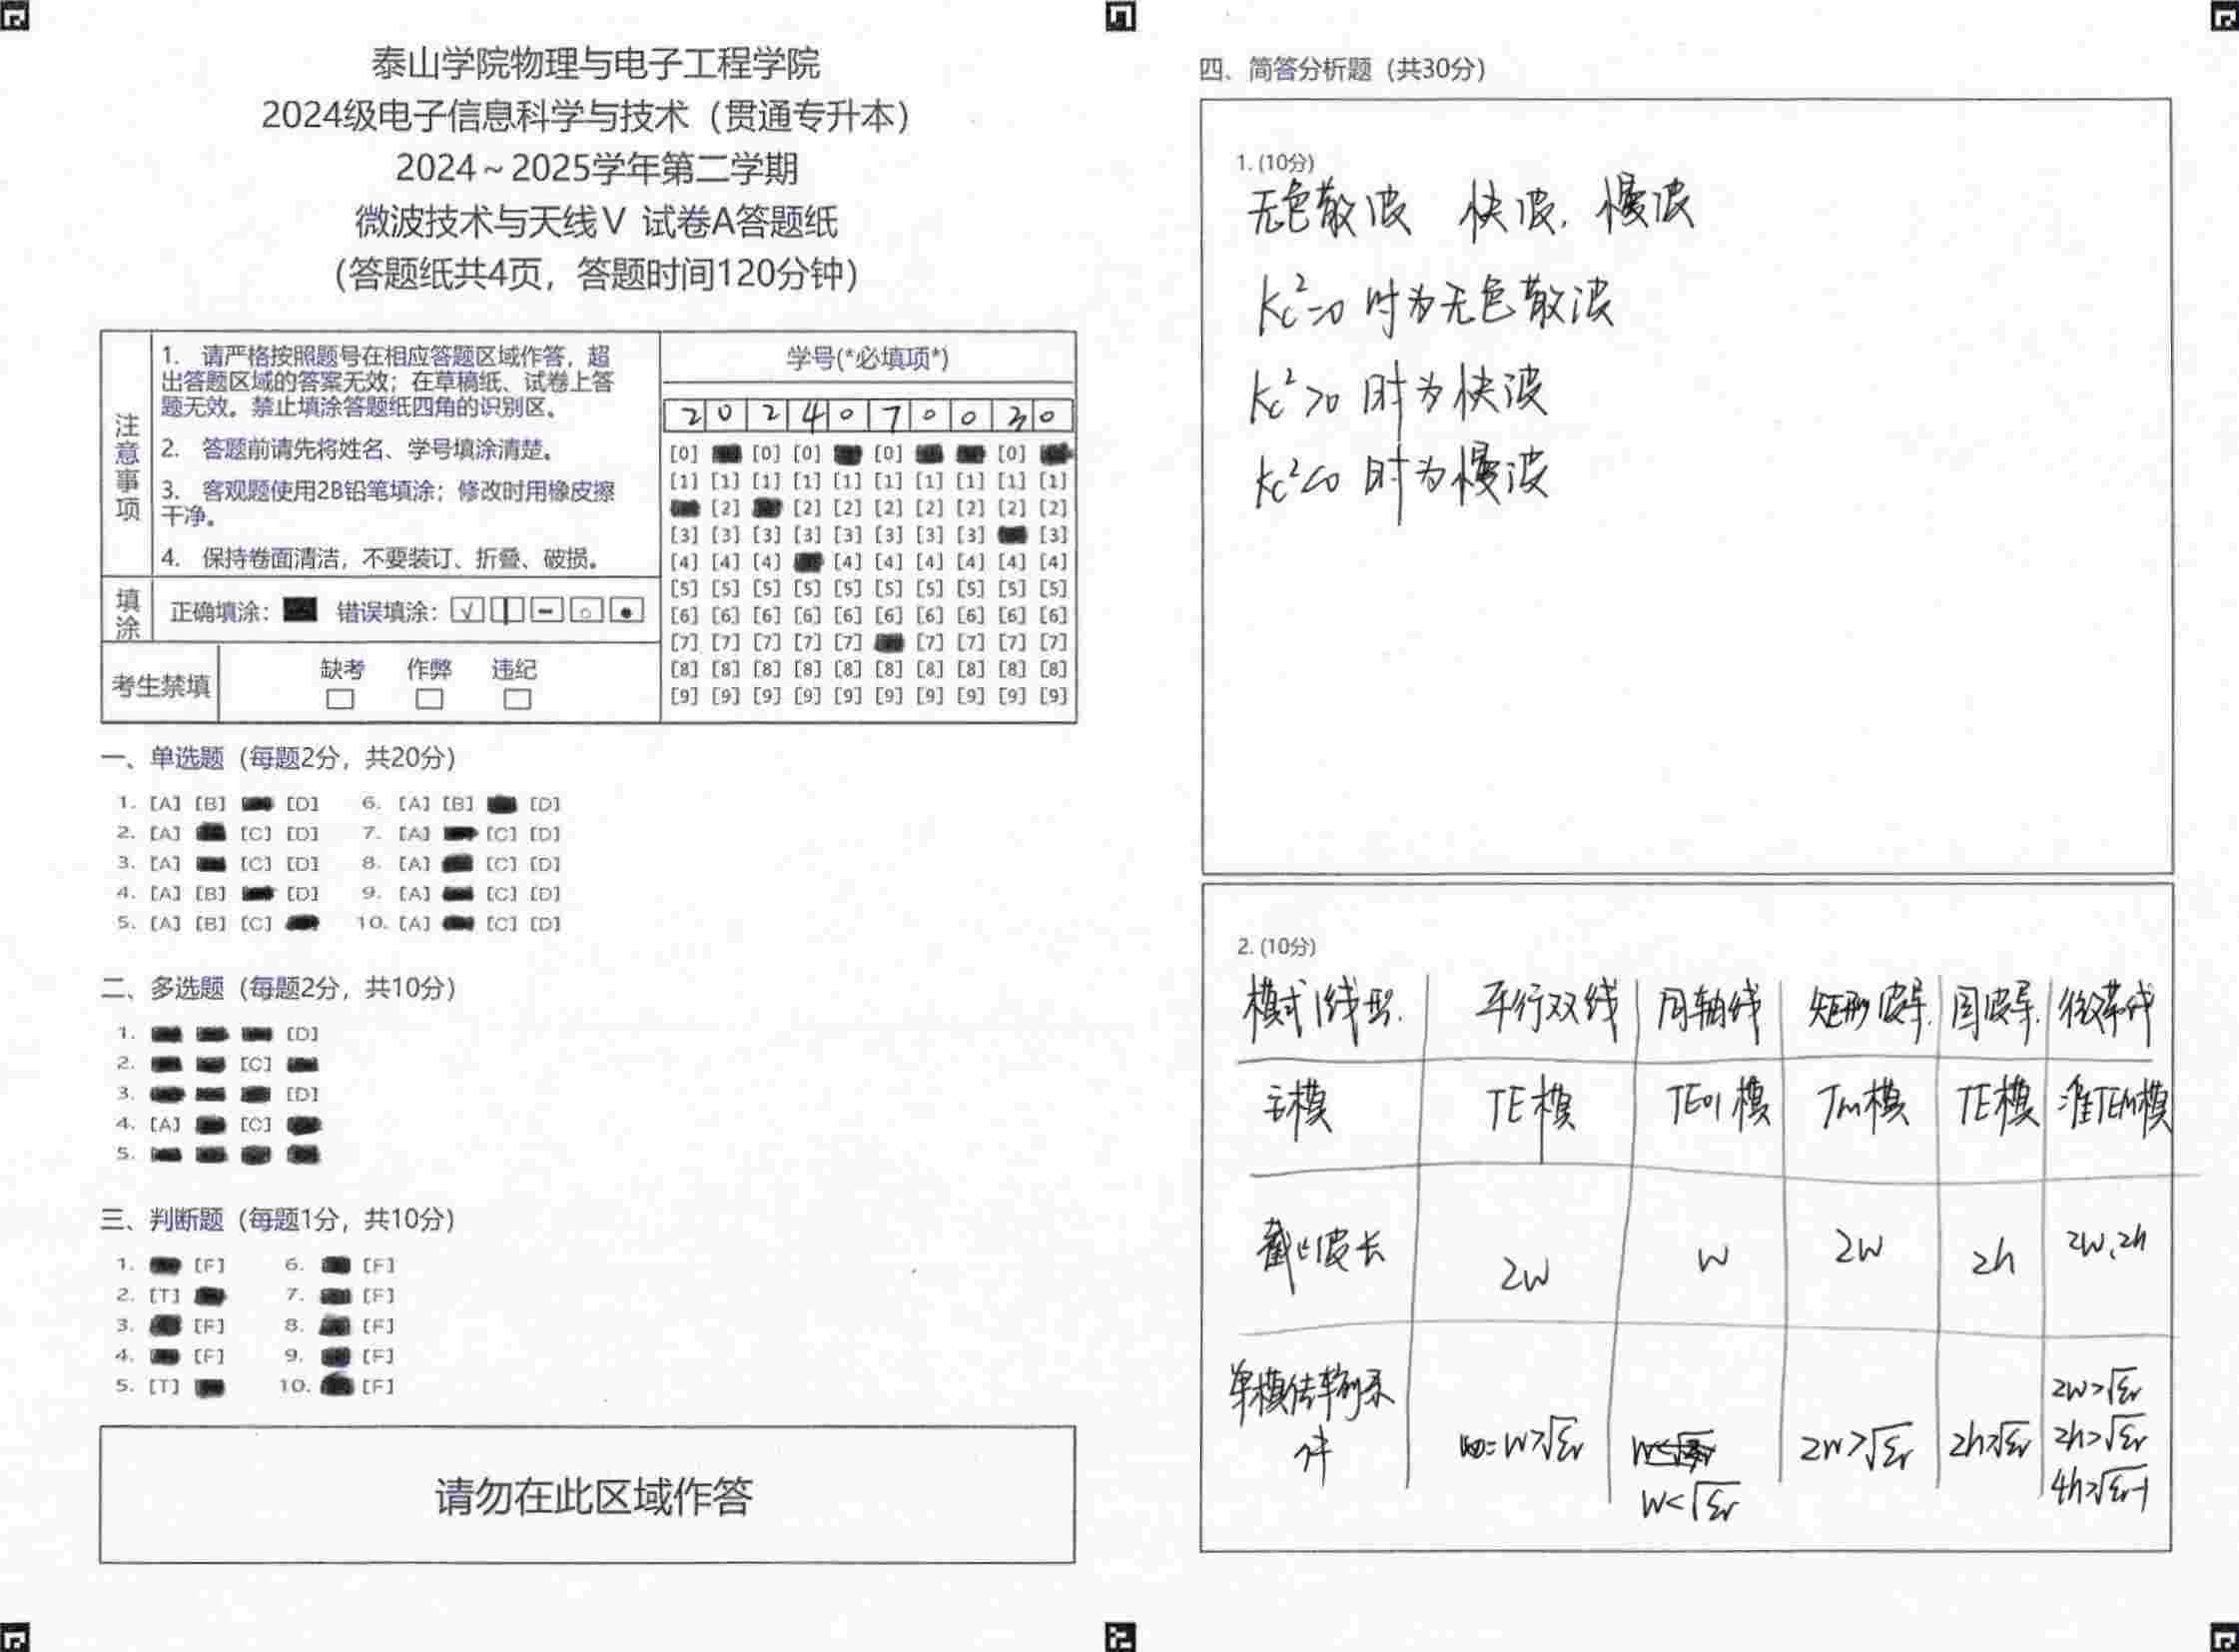 泰山学院物理与电子工程学院
2024级电子信息科学与技术（贯通专升本）
2024～2025学年第二学期
微波技术与天线Ⅴ 试卷A答题纸
（答题纸共4页，答题时间120分钟）
注意事项
1. 请严格按照题号在相应答题区域作答，超
出答题区域的答案无效；在草稿纸、试卷上答
题无效。禁止填涂答题纸四角的识别区。
2. 答题前请先将姓名、学号填涂清楚。
3. 客观题使用2B铅笔填涂；修改时用橡皮擦
干净。
4. 保持卷面清洁，不要装订、折叠、破损。
填涂 正确填涂： 错误填涂：
考生禁填 缺考 作弊 违纪
学号(*必填项*)
2 0 2 4 0 7 0 0 3 0
[0] [0] [0] [0] [0]
[1] [1] [1] [1] [1] [1] [1] [1] [1] [1]
[2] [2] [2] [2] [2] [2] [2] [2]
[3] [3] [3] [3] [3] [3] [3] [3] [3]
[4] [4] [4] [4] [4] [4] [4] [4] [4]
[5] [5] [5] [5] [5] [5] [5] [5] [5] [5]
[6] [6] [6] [6] [6] [6] [6] [6] [6] [6]
[7] [7] [7] [7] [7] [7] [7] [7] [7]
[8] [8] [8] [8] [8] [8] [8] [8] [8] [8]
[9] [9] [9] [9] [9] [9] [9] [9] [9] [9]
一、单选题（每题2分，共20分）
1. [A] [B] [D] 6. [A] [B] [D]
2. [A] [C] [D] 7. [A] [C] [D]
3. [A] [C] [D] 8. [A] [C] [D]
4. [A] [B] [D] 9. [A] [C] [D]
5. [A] [B] [C] 10. [A] [C] [D]
二、多选题（每题2分，共10分）
1. [D]
2. [C]
3. [D]
4. [A] [C]
5.
三、判断题（每题1分，共10分）
1. [F] 6. [F]
2. [T] 7. [F]
3. [F] 8. [F]
4. [F] 9. [F]
5. [T] 10. [F]
请勿在此区域作答
四、简答分析题（共30分）
1. (10分)
无色散波 快波. 慢波
Kc²=0 时为无色散波
Kc²>0 时为快波
Kc²<0 时为慢波
2. (10分)
模式|线型. 平行双线 同轴线 矩形波导. 圆波导. 微带线
主模 TE模 TE01模 Tm模 TE模 准TEM模
截止波长 2w w 2w 2h 2w、2h
单模传输条
件 w>√εr w<√εr 2w>√εr 2h>√εr 2w>√εr
2h>√εr
4h>√εr-1